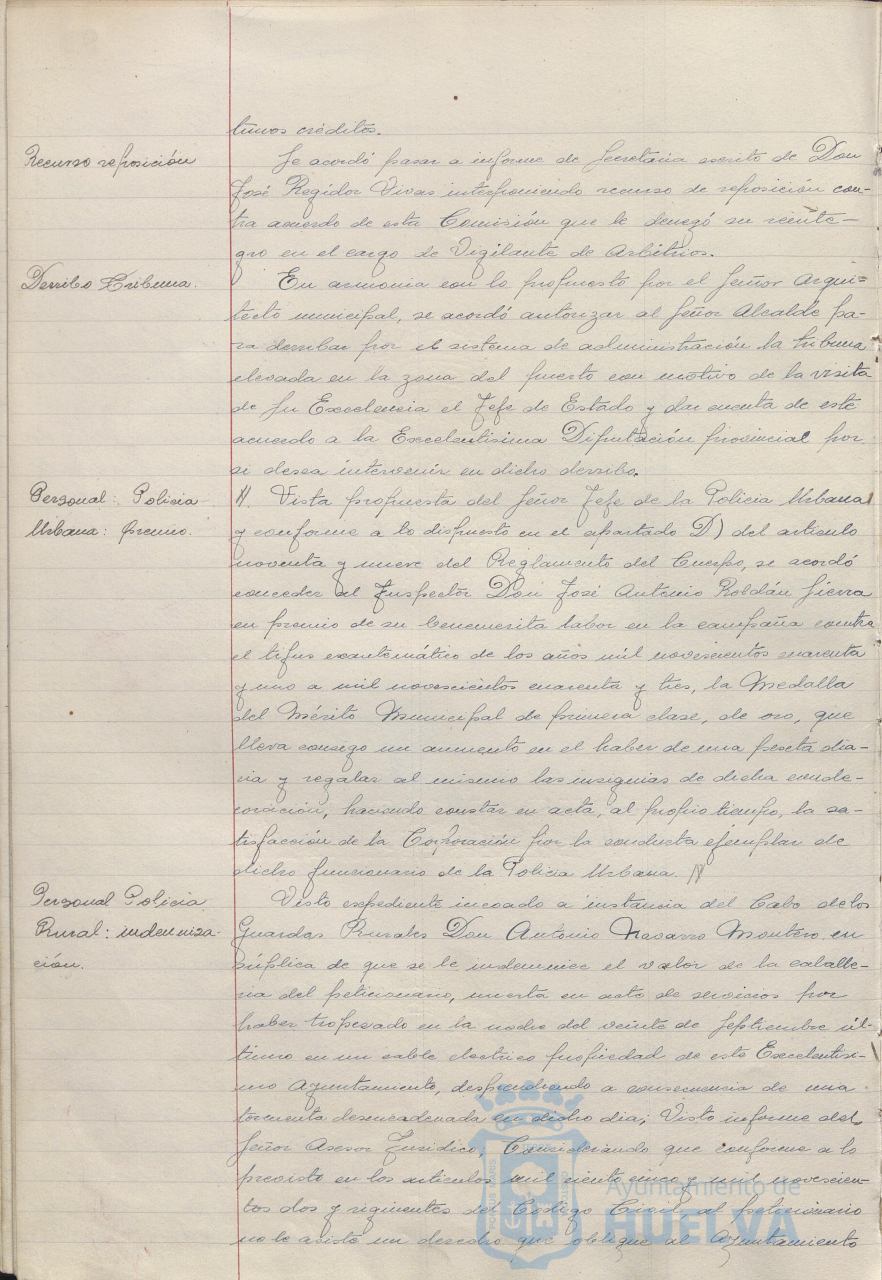 timos créditos.
Recurso reposición
Se acordó pasar a informe de Secretaría escrito de Don
José Regidor Vivas interponiendo recurso de reposición con-
tra acuerdo de esta Comisión que le denegó su reinte-
gro en el cargo de Vigilante de Arbitrios.
Derribo Tribuna.
En armonia con lo propuesto por el Señor Arqui-
tecto municipal, se acordó autorizar al Señor Alcalde pa-
ra derribar por el sistema de administración la tribuna
elevada en la zona del puerto con motivo de la visita
de Su Excelencia el Jefe de Estado y dar cuenta de este
acuerdo a la Excelentísima Diputación provincial por
si desea intervenir en dicho derribo.
Personal: Policia
Urbana: premio.
Vista propuesta del Señor Jefe de la Policia Urbana
y conforme a lo dispuesto en el apartado D) del articulo
noventa y nueve del Reglamento del Cuerpo, se acordó
conceder al Inspector Don José Antonio Robdán Sierra
en premio de su benemerita labor en la campaña contra
el tifus exantemático de los años mil novescientos cuarenta
y uno a mil novescientos cuarenta y tres, la Medalla
del Mérito Municipal de primera clase, de oro, que
lleva consigo un aumento en el haber de una peseta dia-
ria y regalar al mismo las insignias de dicha conde-
coración, haciendo constar en acta, al propio tiempo, la sa-
tisfacción de la Corporación por la conducta ejemplar de
dicho funcionario de la Policia Urbana.
Personal Policia
Rural: indemniza-
ción.
Visto expediente incoado a instancia del Cabo de los
Guardas Rurales Don Antonio Navarro Montero en
súplica de que se le indemnice el valor de la caballe-
ria del peticionario, muerta en acto de servicios por
haber tropezado en la noche del veinte de Septiembre úl-
timo en un cable electrico propiedad de este Excelentisi-
mo Ayuntamiento, desprendiendo a consecuencia de una
tormenta desencadenada en dicho dia; Visto informe del
Señor Asesor Juridico; Considerando que conforme a lo
previsto en los articulos mil ciento cinco y mil novescien-
tos dos y siguientes del Codigo Civil al peticionario
no le asiste un derecho que obligue al Ayuntamiento
Ayuntamiento de
HUELVA